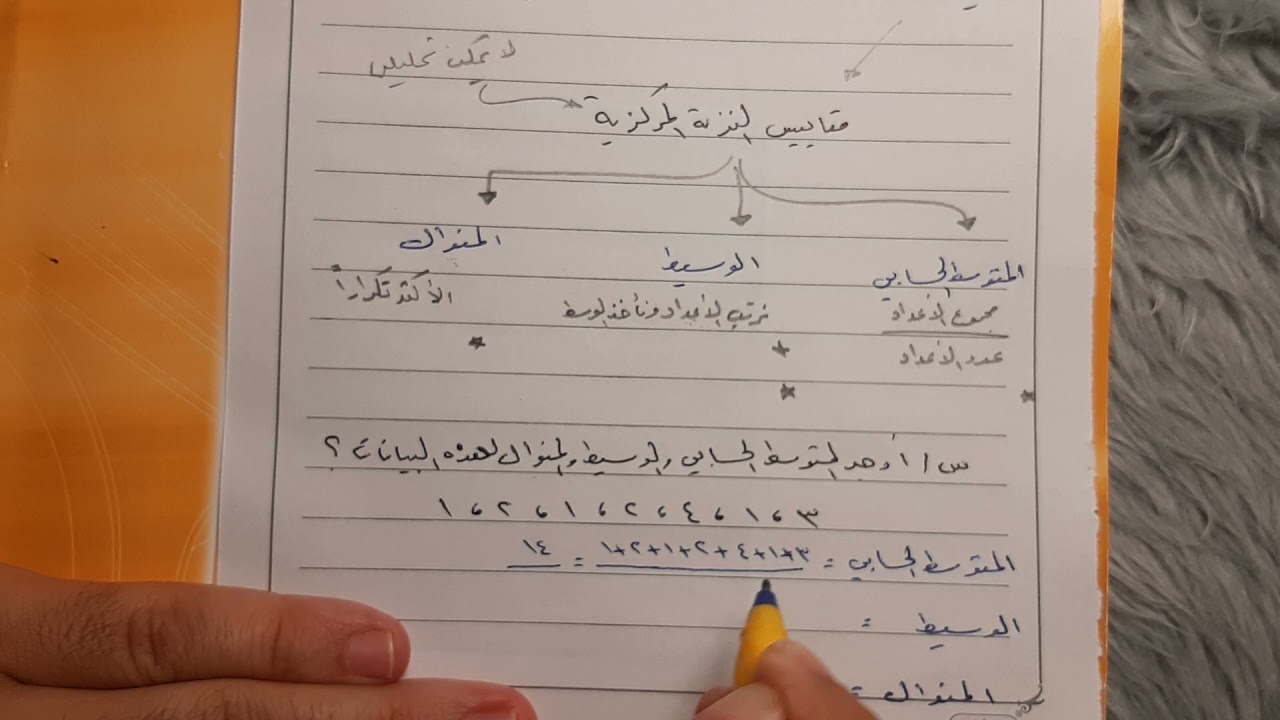 لا يمكن تحليل
مقاييس النزعة المركزية
المتوسط الحسابي الوسيط المنوال
مجموع الأعداد نرتب الأعداد ونأخذ الوسط الأكثر تكراراً
عدد الأعداد
س١/ أوجد المتوسط الحسابي والوسيط والمنوال لهذه البيانات ؟
٣ ، ١ ، ٤ ، ٢ ، ١ ، ٢ ، ١
المتوسط الحسابي = ٣+١+٤+٢+١+٢+١ = ١٤
الوسيط =
المنوال =